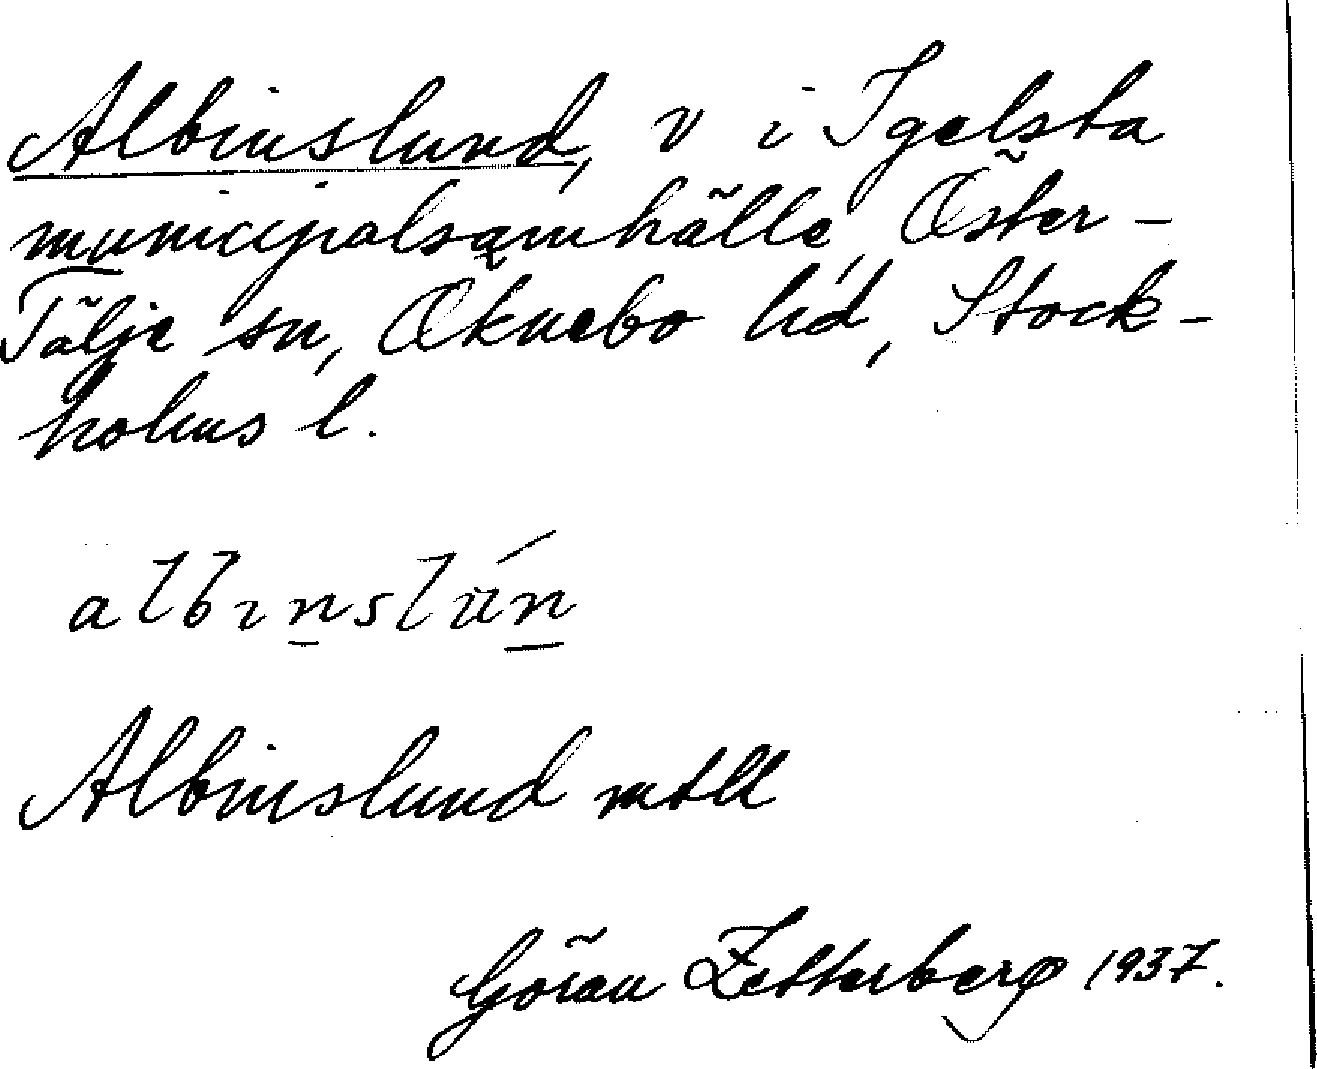 Albinslund, v i Igelsta
municipalsamhälle, Öster-
Tälje sn, Öknebo hd, Stock-
holms l.
Albinslund mtll
Göran Zetterberg 1937.